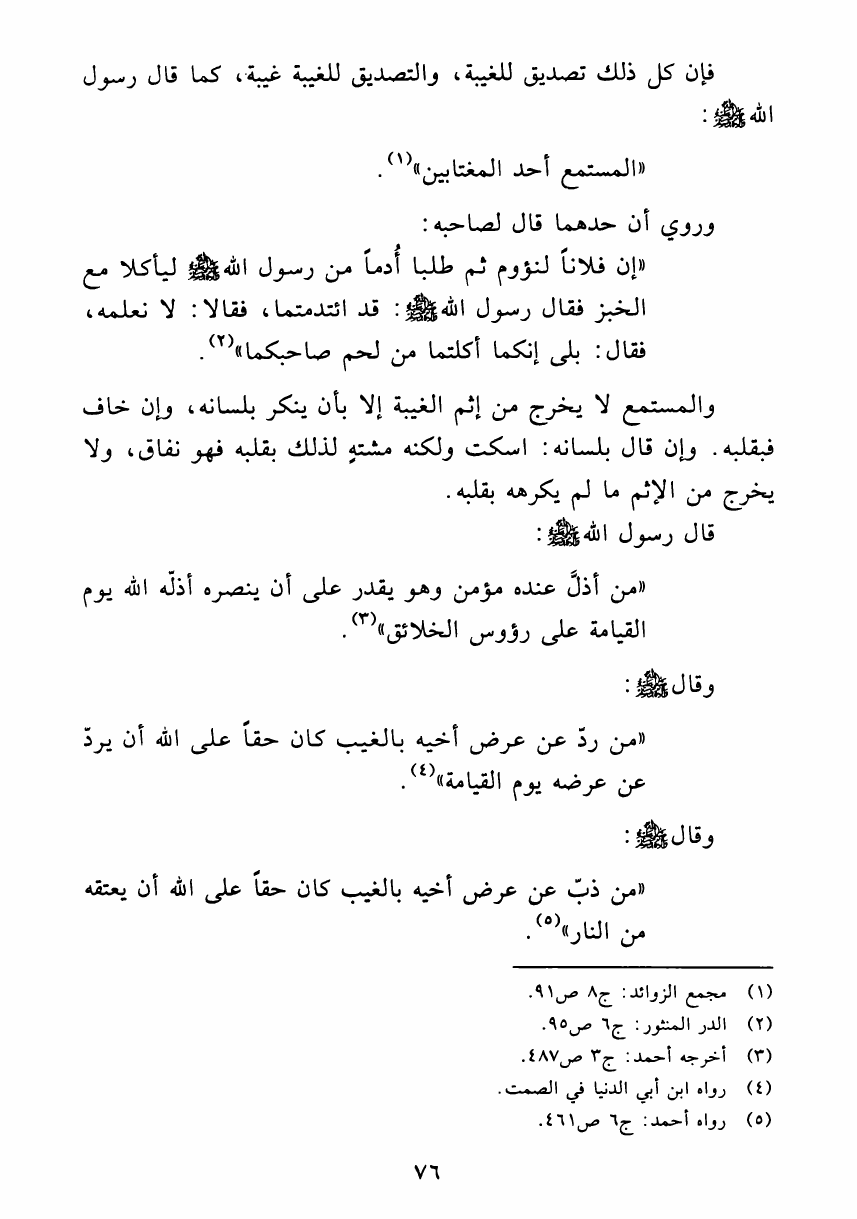 فإن كل ذلك تصديق للغيبة، والتصديق للغيبة غيبة، كما قال رسول
الله ﷺ :
«المستمع أحد المغتابين»(١).
وروي أن حدهما قال لصاحبه:
«إن فلاناً لنؤوم ثم طلبا أُدماً من رسول الله ﷺ ليأكلا مع
الخبز فقال رسول الله ﷺ : قد ائتدمتما، فقالا: لا نعلمه،
فقال: بلى إنكما أكلتما من لحم صاحبكما»(٢).
والمستمع لا يخرج من إثم الغيبة إلا بأن ينكر بلسانه، وإن خاف
فبقلبه. وإن قال بلسانه: اسكت ولكنه مشتهٍ لذلك بقلبه فهو نفاق، ولا
يخرج من الإثم ما لم يكرهه بقلبه.
قال رسول الله ﷺ :
«من أذلَّ عنده مؤمن وهو يقدر على أن ينصره أذلّه الله يوم
القيامة على رؤوس الخلائق»(٣).
وقال ﷺ :
«من ردّ عن عرض أخيه بالغيب كان حقاً على الله أن يردّ
عن عرضه يوم القيامة»(٤).
وقال ﷺ :
«من ذبّ عن عرض أخيه بالغيب كان حقاً على الله أن يعتقه
من النار»(٥).
(١) مجمع الزوائد: ج٨ ص٩١.
(٢) الدر المنثور: ج٦ ص٩٥.
(٣) أخرجه أحمد: ج٣ ص٤٨٧.
(٤) رواه ابن أبي الدنيا في الصمت.
(٥) رواه أحمد: ج٦ ص٤٦١.
٧٦